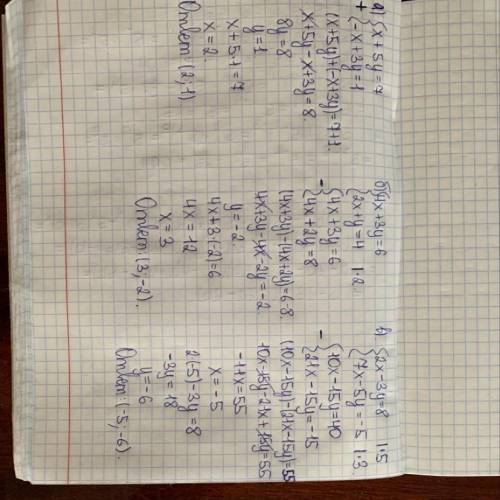 а) {x + 5y = 7
+ {-x + 3y = 1
(x + 5y) + (-x + 3y) = 7 + 1.
x + 5y - x + 3y = 8.
8y = 8
y = 1
x + 5·1 = 7
x = 2.
Ответ (2; 1)
б) {4x + 3y = 6
{2x + y = 4 |·2.
- {4x + 3y = 6
{4x + 2y = 8
(4x + 3y) - (4x + 2y) = 6 - 8.
4x + 3y - 4x - 2y = -2.
y = -2.
4x + 3·(-2) = 6
4x = 12
x = 3
Ответ (3; -2).
в) {2x - 3y = 8 |·5
{7x - 5y = -5 |·3.
- {10x - 15y = 40
{21x - 15y = -15
(10x - 15y) - (21x - 15y) = 55
10x - 15y - 21x + 15y = 55
-11x = 55
x = -5
2(-5) - 3y = 8
-3y = 18
y = -6
Ответ: (-5; -6).